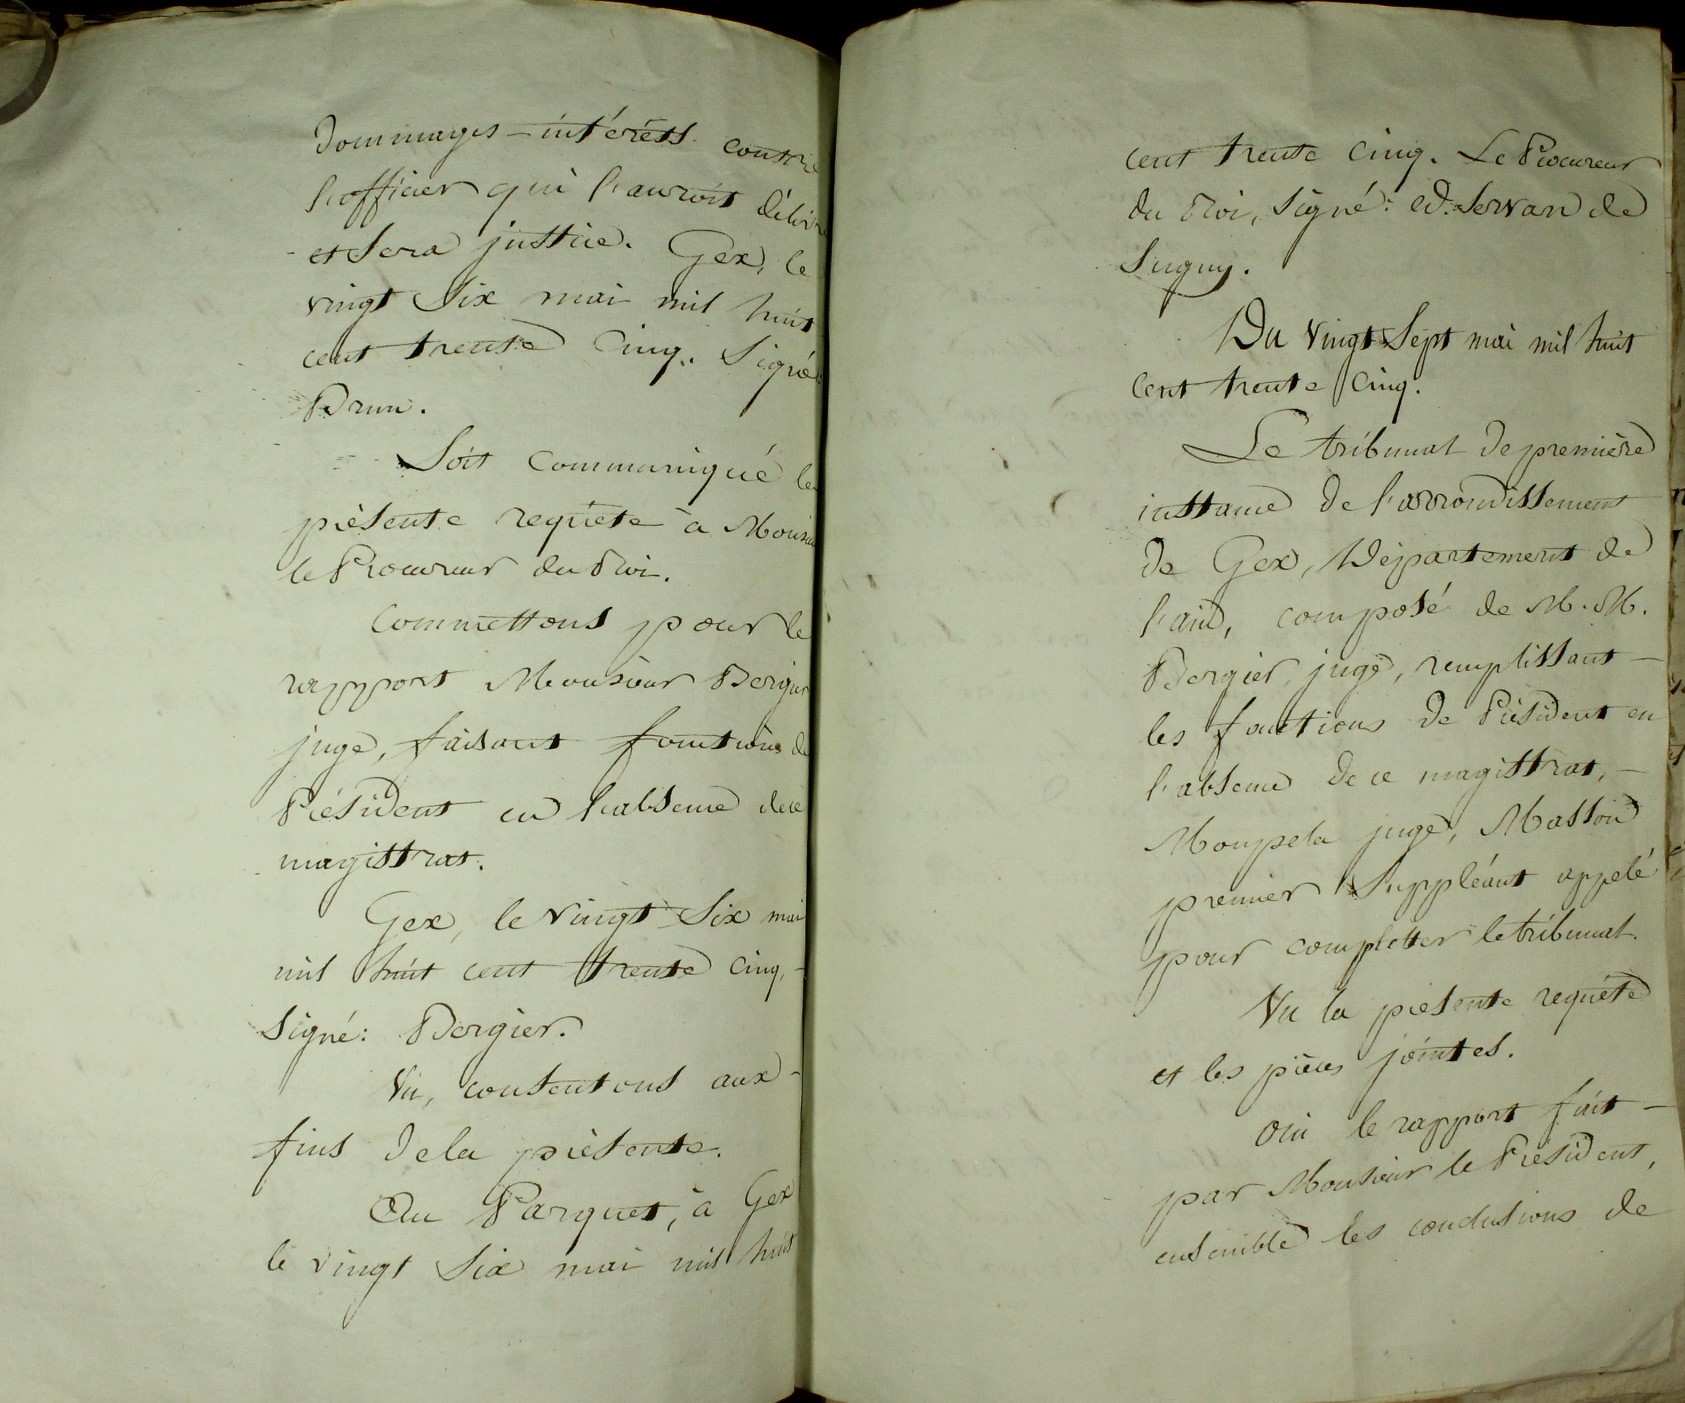 Dommages-intérêts contre
l'officier qui l'auroit délivré
et sera justice. Gex, le
vingt six mai mil huit
cent trente cinq. Signé:
Brun.
Soit communiqué la
présente requête à Monsieur
le Procureur du Roi.
Commettons pour le
rapport Monsieur Bergier
juge, faisant fonctions de
Président en l'absence de ce
magistrat.
Gex, le vingt six mai
mil huit cent trente cinq,
Signé: Bergier.
Vu, consentons aux
fins de la présente.
Au Parquet, à Gex
le vingt six mai mil huit
cent trente cinq. Le Procureur
du Roi, signé: ed. Servan de
Sugny.
Du vingt sept mai mil huit
cent trente cinq.
Le tribunal de première
instance de l'arrondissement
de Gex, Département de
l'ain, composé de M.M.
Bergier, juge, remplissant
les fonctions de Président en
l'absence de ce magistrat,
Mompela juge, Masson
premier Suppléant appelé
pour completter le tribunal.
Vu la présente requête
et les pièces jointes.
Oui le rapport fait
par Monsieur le Président,
ensemble les conclusions de